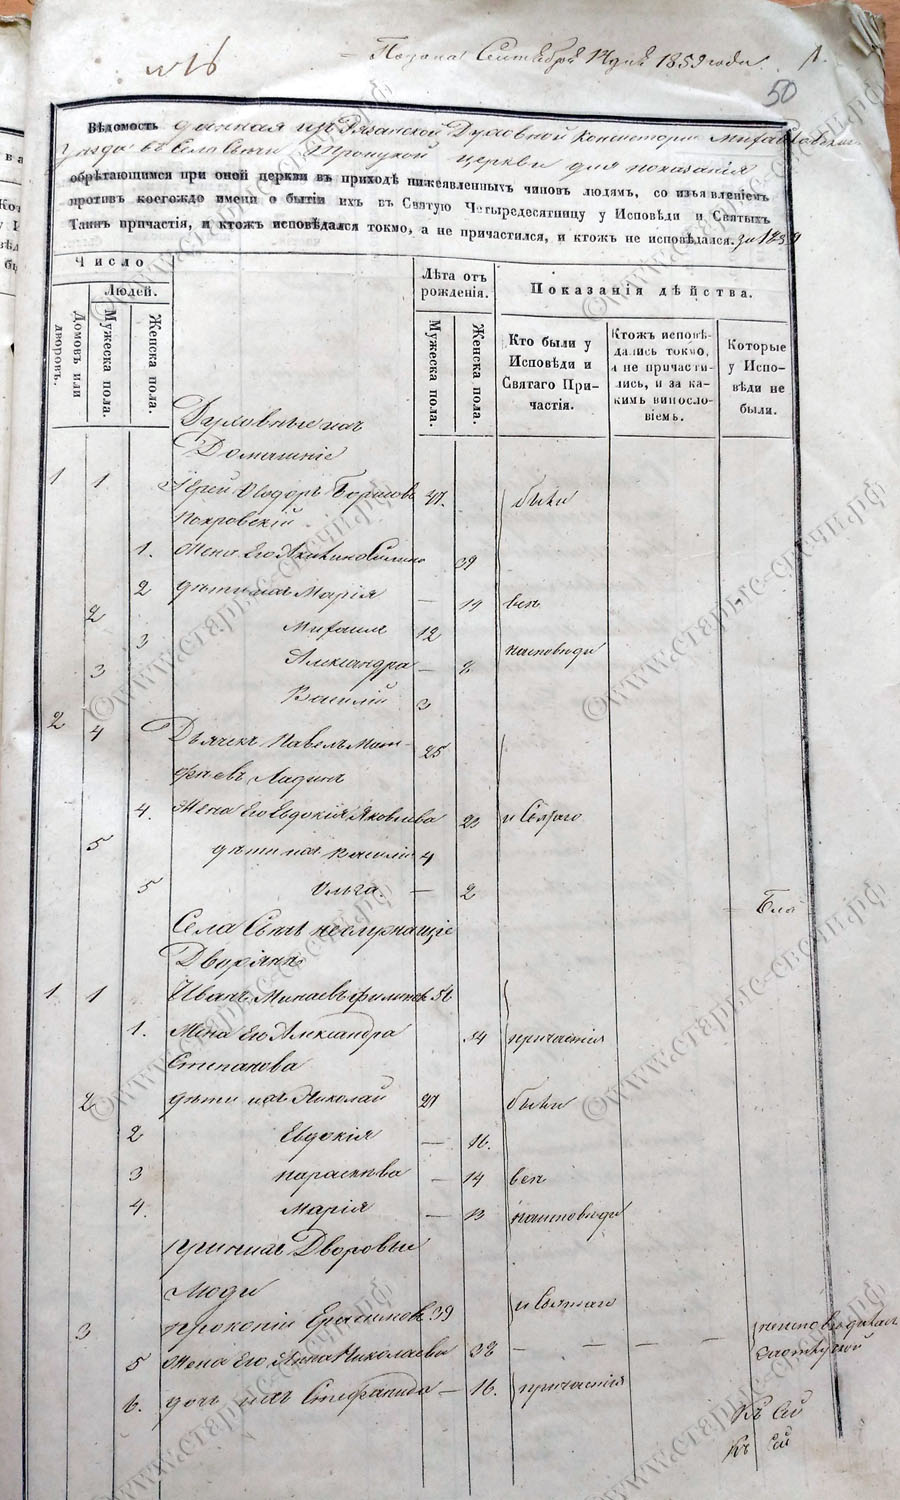 № 16
Подана Сентября 14 дня 1859 года.
50
Вѣдомость данная изъ Рязанской Духовной Консисторіи Михайловскаго
уѣзда въ Троицкой церкви для показанія
обрѣтающимся при оной церкви въ приходѣ нижеявленныхъ чиновъ людямъ, со изъявленіемъ
противъ коегождо имени о бытіи ихъ въ Святую Четыредесятницу у Исповѣди и Святыхъ
Таинъ причастія, и ктожъ исповѣдался токмо, а не причастился, и ктожъ не исповѣдался. за 1859
Число
Людей.
Домовъ или дворовъ.
Мужеска пола.
Женска пола.
Лѣта отъ рожденія.
Мужеска пола.
Женска пола.
Показанія дѣйства.
Кто были у Исповѣди и Святаго Причастія.
Ктожъ исповѣдались токмо, а не причастились, и за какимъ винословіемъ.
Которые у Исповѣди не были.
Духовные ихъ
Домашніе
1 1 Іерей Ѳеодоръ Борисовъ 47. были
Покровскій
1. Жена его Акилина 39
2 дѣти ихъ Марія — 19 всѣ
2 Михаилъ 12
3 Александра — 8 исповѣди
3 Василій 3
2 4 Дьячекъ Павелъ Мат- 25
фѣевъ Ладинъ
4. Жена его Евдокія Яковлева 23 и Святаго
5 дѣти ихъ Василій 4
5 Ольга — 2
Села неслужащіе
Дворяне
1 1 Иванъ Минаевъ 56
1. Жена его Александра 54 причастія
Степанова
2 дѣти ихъ Николай 27 были
2 Евдокія — 16.
3 Параскева — 14 всѣ
4. Марія — 13 исповѣди
При нихъ Дворовые
Люди
3 Прокопій 39 и Святаго
5 Жена его Анна Николаева 38 — — — —
6. дочь ихъ Стефанида — 16. причастія
©www.старые-свечи.рф